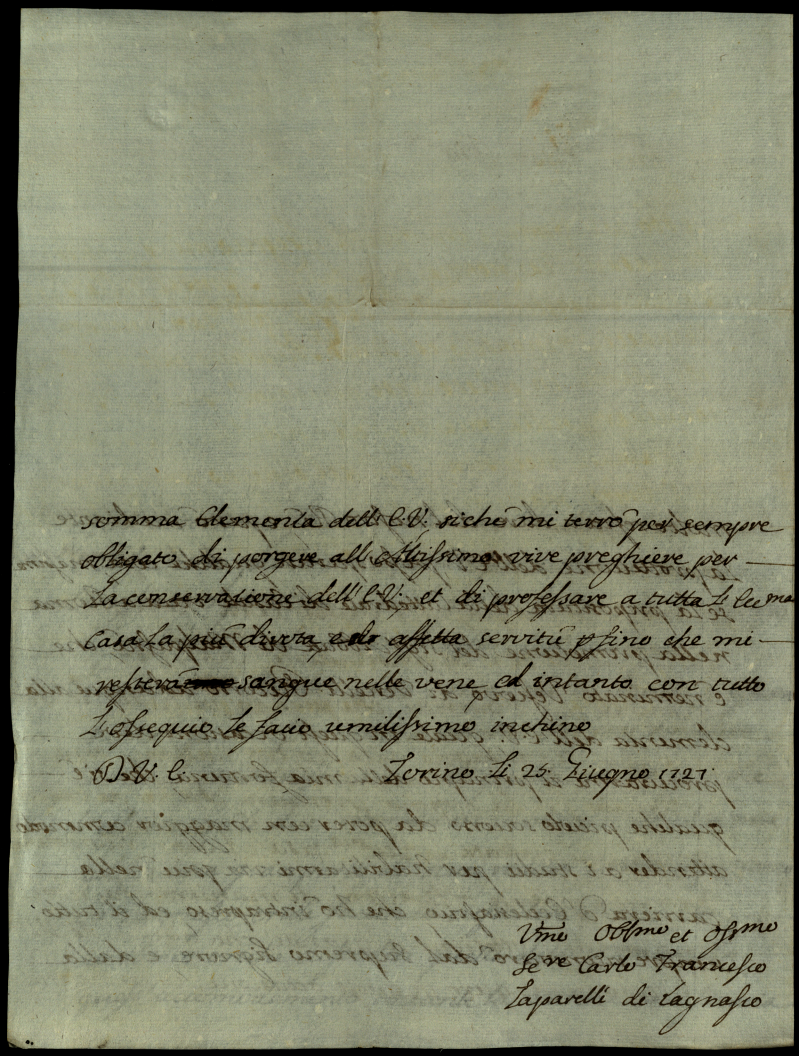 somma Clemenza dell'E.V. siche mi terrò per sempre
obligato di porgere all'Altissimo vive preghiere per
la conservazione dell'E.V., et di professare a tutta L'Ecc.ma
Casa la più divota, ed affetta servitù p fino che mi
resterà sangue nelle vene, ed intanto con tutto
L'ossequio le facio umilissimo inchino
D. V. E. Torino Li 25 Giugno 1727
Vmo Obbmo et Ossmo
Sere Carlo Francesco
Taparelli di Lagnasco